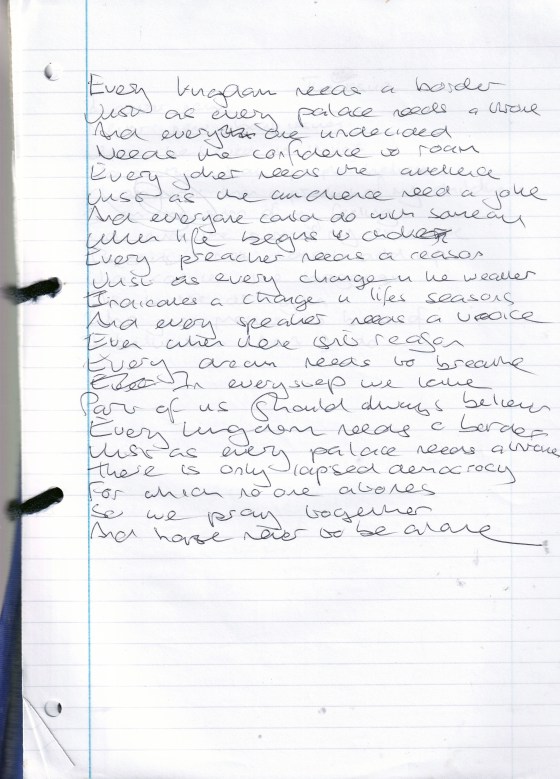 Every kingdom needs a border
Just as every palace needs a throne
And everyone undecided
Needs the confidence to roam
Every joker needs the audience
Just as the audience need a joke
And everyone could do with someone
When life begins to
Every preacher needs a reason
Just as every change in the weather
Indicates a change in lifes seasons
And every speaker needs a voice
Even when there isn't reason
Every dream needs to breathe
In every step we take
Part of us should always believe
Every kingdom needs a border
Just as every palace needs a throne
there is only lapsed democracy
For which no one atones
So we pray together
And hope never to be alone